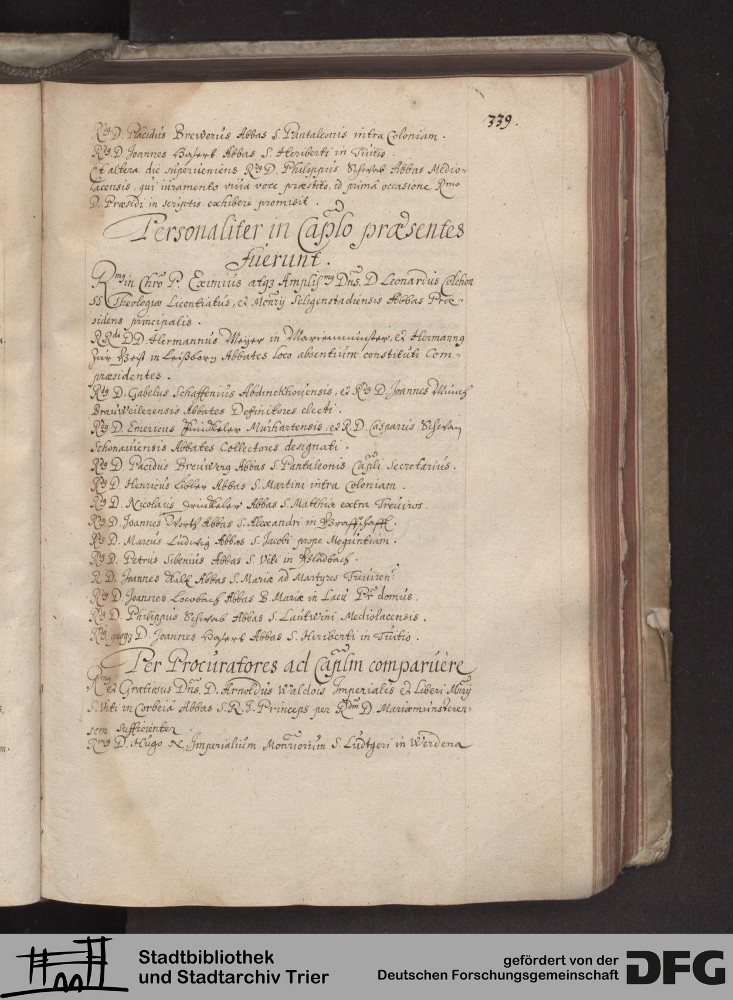 339.
R.us D. Placidus Breweius Abbas S. Pantaleonis intra Coloniam.
R.us D. Joannes Hasert Abbas S. Heriberti in Tuitio.
Et altera die superveniens R.us D. Philippus Schwab Abbas Medio-
lacensis, qui iuramento viva voce præstito, id prima occasione R.mo
D. Præsidi in scriptis exhibere promisit.
Personaliter in Caplo præsentes
fuerunt.
R.mus in Chro P. Eximius atq3 Amplis.mus Dns. D. Leonardus Colchon
SS Theologiæ Licentiatus, et Monrij Seligenstadiensis Abbas Præ-
sidens principalis.
RR.di DD. Hermannus Meyer in Marienmunster, et Hermannus
zur Geist in Leisborn Abbates loco absentium constituti Com-
præsidentes.
R.us D. Gabelus Schaffenius Abdinckhovensis, et R.us D. Joannes Münch
Brauweilerensis Abbates Definitores electi.
R.us D. Emericus Fünckeler Murhartensis, et R.D. Casparus
Schonauiensis Abbates Collectores designati.
R.us D. Placidus Breuwerus Abbas S. Pantaleonis Capli Secretarius.
R.us D. Henricus Libler Abbas S. Martini intra Coloniam.
R.us D. Nicolaus Trinckeler Abbas S. Matthiæ extra Treuiros.
R.us D. Joannes Worth Abbas S. Alexandri in Graffschafft.
R.us D. Marcus Ludwig Abbas S. Jacobi prope Moguntiam.
R.us D. Petrus Sibenius Abbas S. Viti in Gladbach.
R. D. Joannes Hall Abbas S. Mariæ ad Martyres Treuiren:
R.us D. Joannes Luobach Abbas B. Mariæ in Lacu Pr domus.
R.us D. Philippus Schwab Abbas S. Lautwini Mediolacensis.
R.us quoq3 D. Joannes Hasert Abbas S. Heriberti in Tuitio.
Per Procuratores ad Caplm comparuere
R.mus et Gratiosus Dns. D. Arnoldus Waldois Imperialis et Liberi Monrij
S. Viti in Corbeia Abbas S.R.I. Princeps per R.dum D. Mariæmunsteren-
sem sufficienter.
R.mus D. Hugo N. Imperialium Monriorum S. Ludtgeri in Werdena
Stadtbibliothek
und Stadtarchiv Trier
gefördert von der
Deutschen Forschungsgemeinschaft
DFG